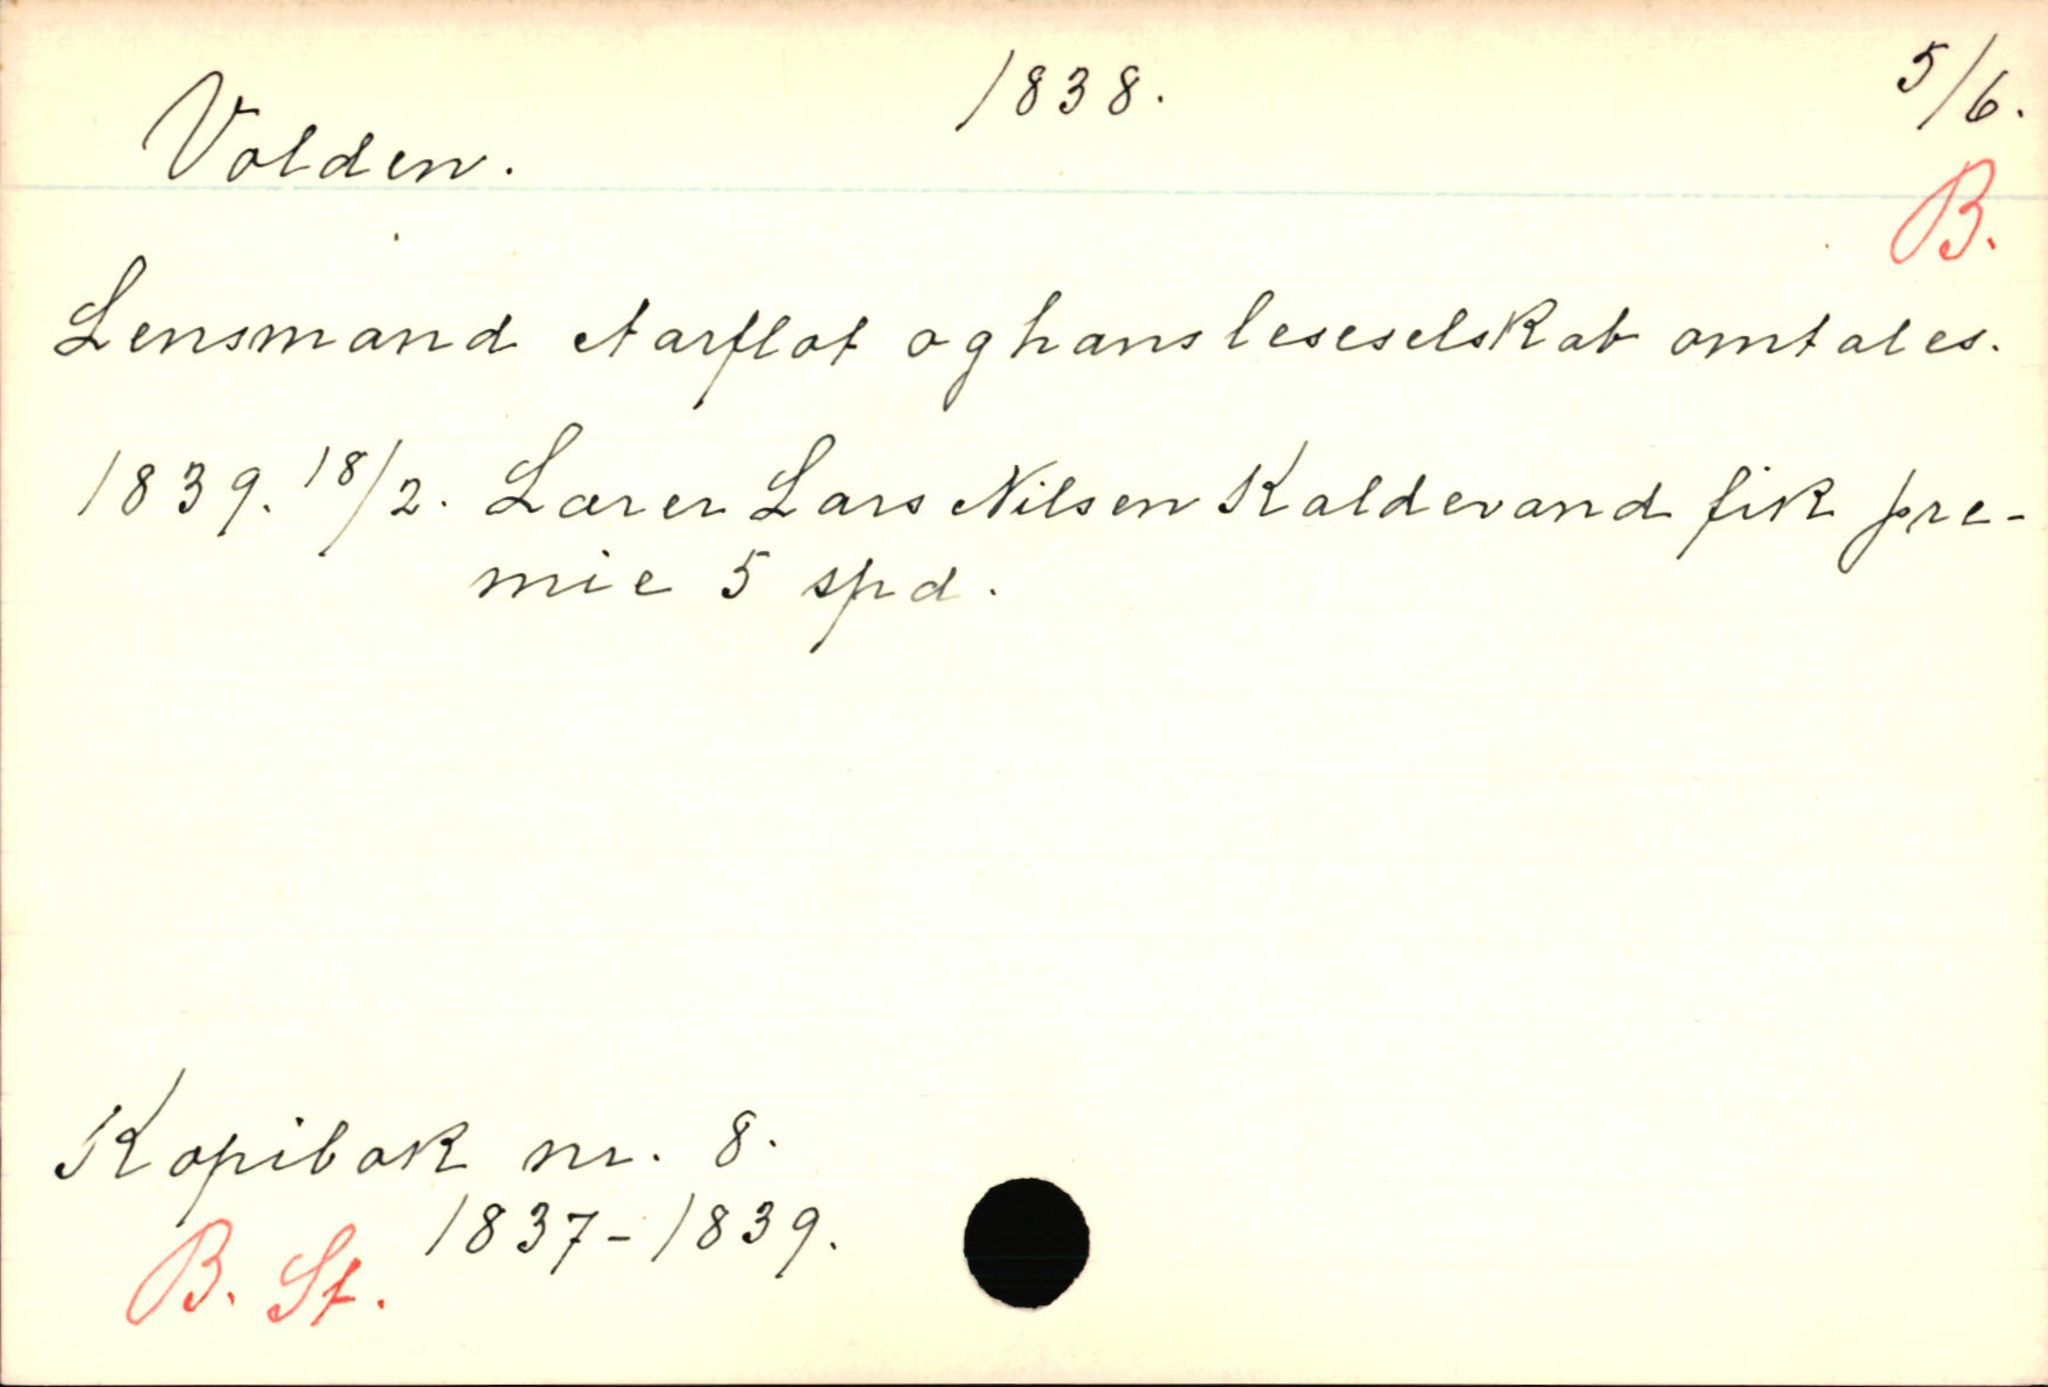 Volden. 1838. 5/6.
B.
Lensmand Aarflot og hans leseselskab omtales.
1839. 18/2. Lærer Lars Nilsen Kaldevand fik pre-
mie 5 spd.
Kopibok nr. 8.
1837-1839.
B. St.